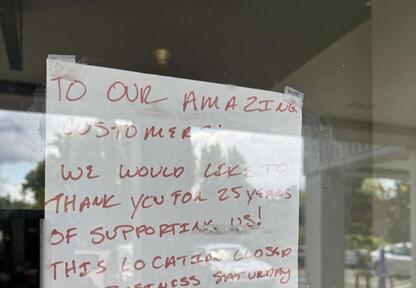 TO OUR AMAZING
CUSTOMERS!
WE WOULD LIKE TO
THANK YOU FOR 25 YEARS
OF SUPPORTING US!
THIS LOCATION CLOSED
BUSINESS SATURDAY